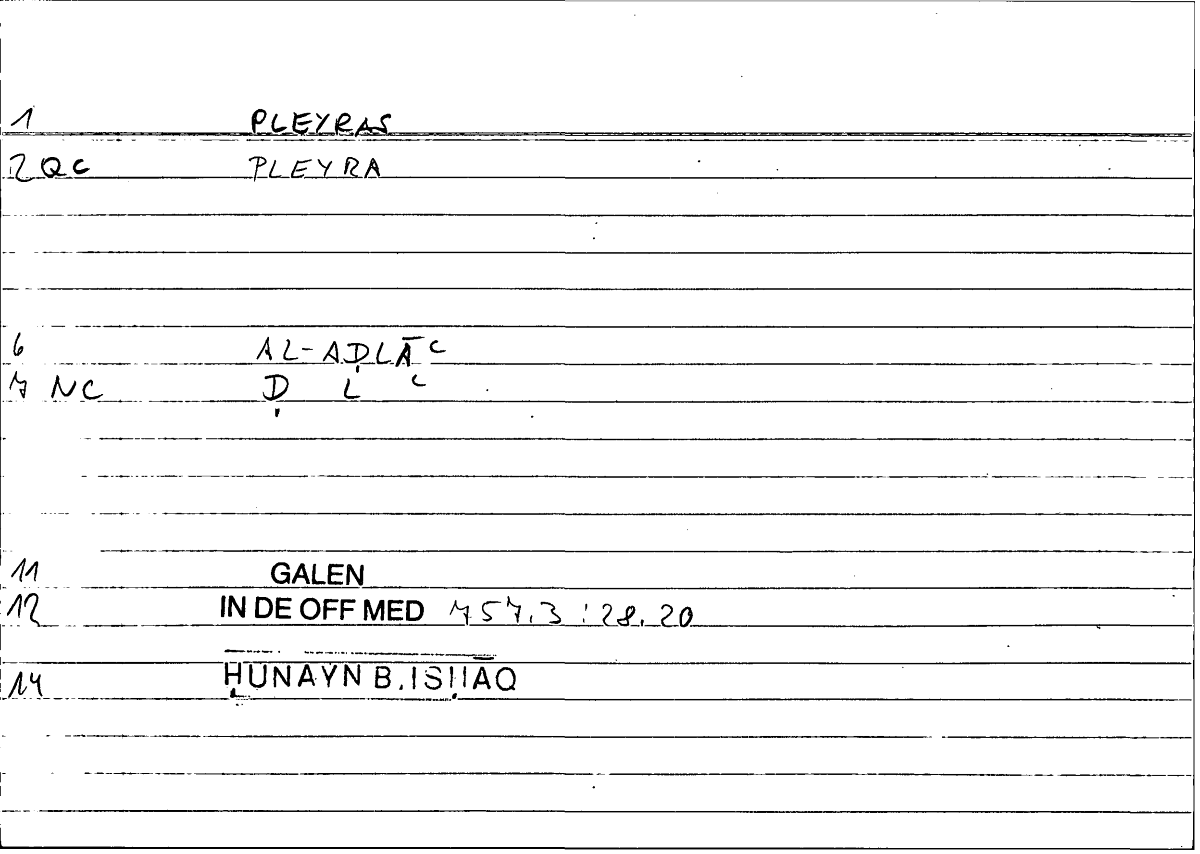 1 PLEYRAS
2 QC PLEYRA
6 AL-AḌLĀ ͨ
7 NC Ḍ L ͨ
11 GALEN
12 IN DE OFF MED 757.3 : 28.20
14 ḤUNAYN B. ISḤĀQ